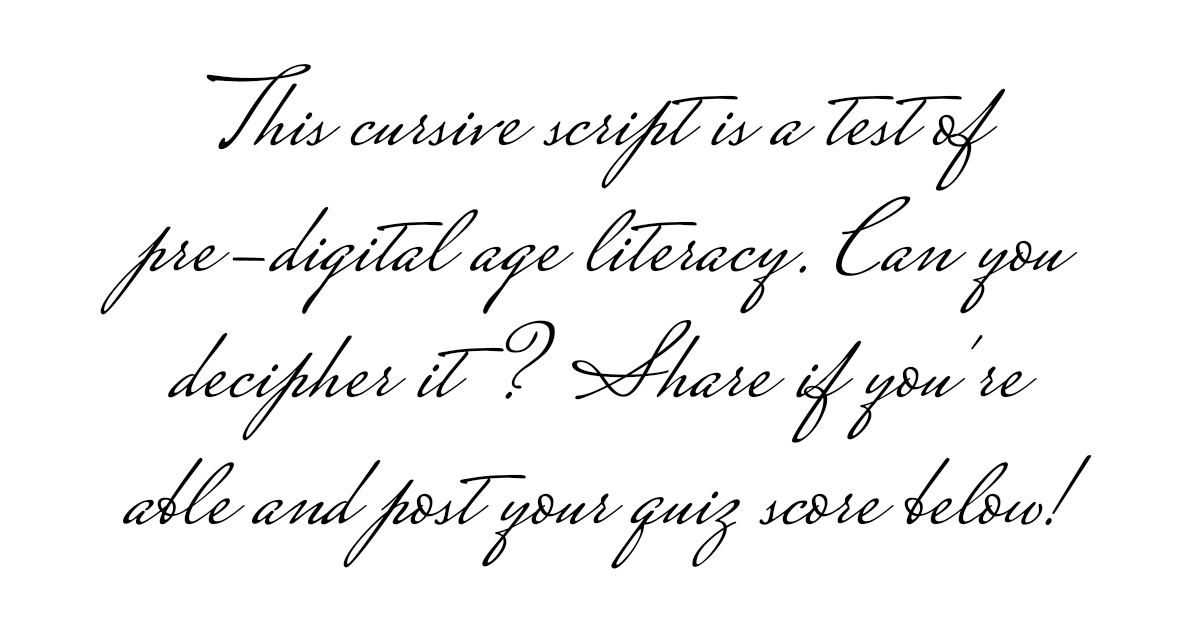 This cursive script is a test of
pre-digital age literacy. Can you
decipher it? Share if you're
able and post your quiz score below!